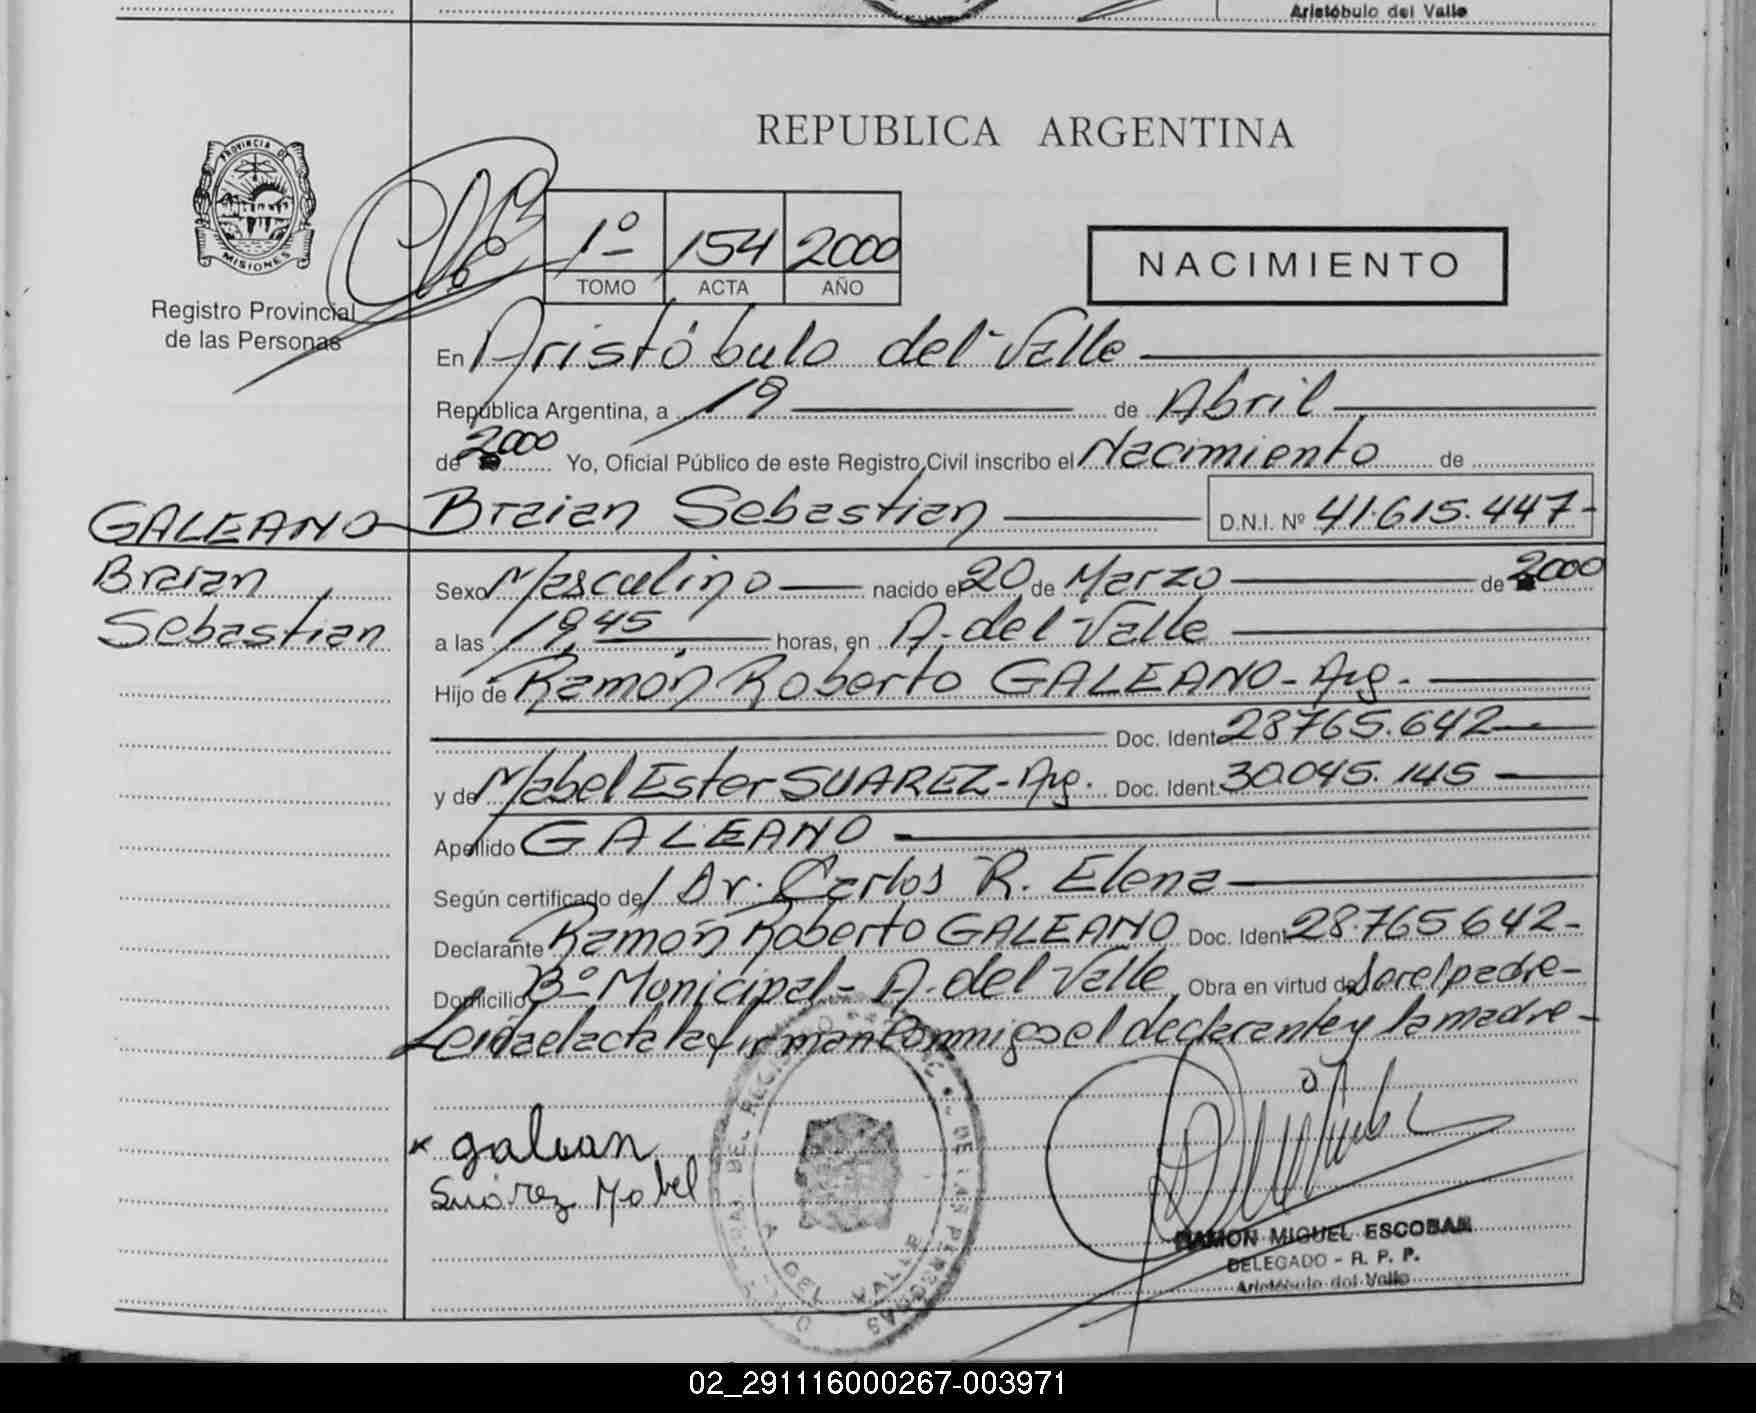 Aristóbulo del Valle
REPUBLICA ARGENTINA
PROVINCIA DE
MISIONES
Registro Provincial
de las Personas
1º 154 2000
TOMO ACTA AÑO
NACIMIENTO
En Aristóbulo del Valle
República Argentina, a 19 de Abril
de 2000 Yo, Oficial Público de este Registro Civil inscribo el Nacimiento de
GALEANO Braian Sebastian D.N.I. Nº 41.615.447-
Braian
Sebastian
Sexo Masculino nacido el 20 de Marzo de 2000
a las 19,45 horas, en A. del Valle
Hijo de Ramón Roberto GALEANO - Arg.
Doc. Ident. 28765.642
y de Mabel Ester SUAREZ - Arg. Doc. Ident. 30.045.145
Apellido GALEANO
Según certificado de Dr. Carlos R. Elena
Declarante Ramón Roberto GALEANO Doc. Ident. 28.765642-
Domicilio Bº Municipal - A. del Valle Obra en virtud de ser el padre-
Leida el acta la firman Conmigo el declarante y la madre-
x galean
Suárez Mabel
DEL REGISTRO DE LAS PERSONAS
A. DEL VALLE
RAMON MIGUEL ESCOBAR
DELEGADO - R. P. P.
Aristóbulo del Valle
02_291116000267-003971